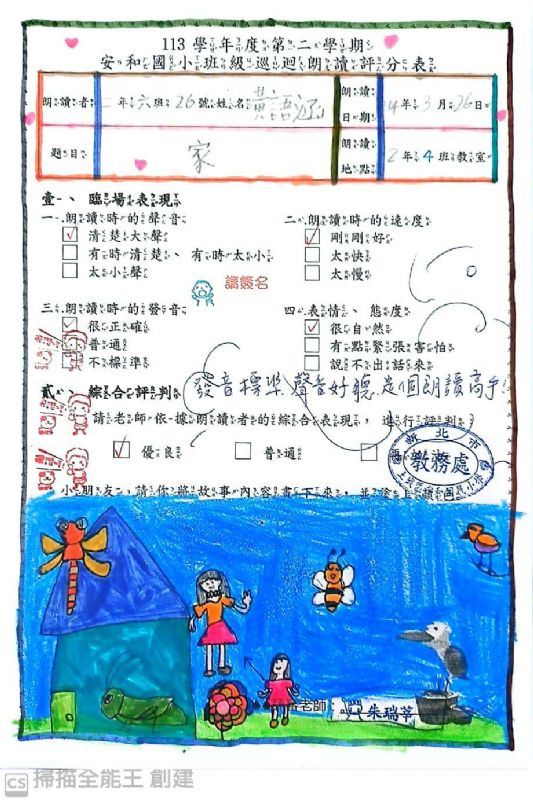 113學年度第二學期
安和國小班級巡迴朗讀評分表
朗讀者 二年六班26號姓名 黃語涵 朗讀日期 114年3月26日
題目 家 朗讀地點 2年4班教室
壹、臨場表現
一、朗讀時的聲音 二、朗讀時的速度
清楚大聲 剛剛好
有時清楚、有時太小 太快
太小聲 太慢
請簽名
三、朗讀時的發音 四、表情、態度
很正確 很自然
普通 有點緊張害怕
不標準 說不出話來
發音標準 聲音好聽 是個朗讀高手!
貳、綜合評判
請老師依據朗讀者的綜合表現,進行評判
優良 普通
新北市
教務處
小朋友,請你將故事內容畫下來,並塗上顏
老師:朱瑞苓
CS 掃描全能王 創建